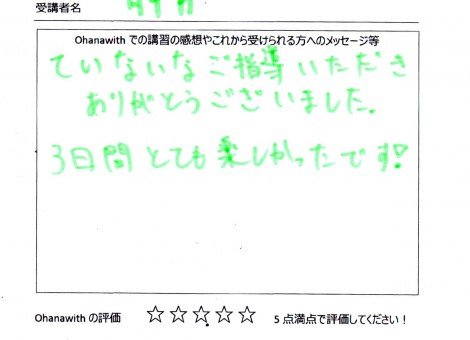 受講者名
Ohanawith での講習の感想やこれから受けられる方へのメッセージ等
ていないなご指導いただき
ありがとうございました。
3日間とても楽しかったです!
Ohanawith の評価 ☆☆☆☆☆ 5点満点で評価してください!